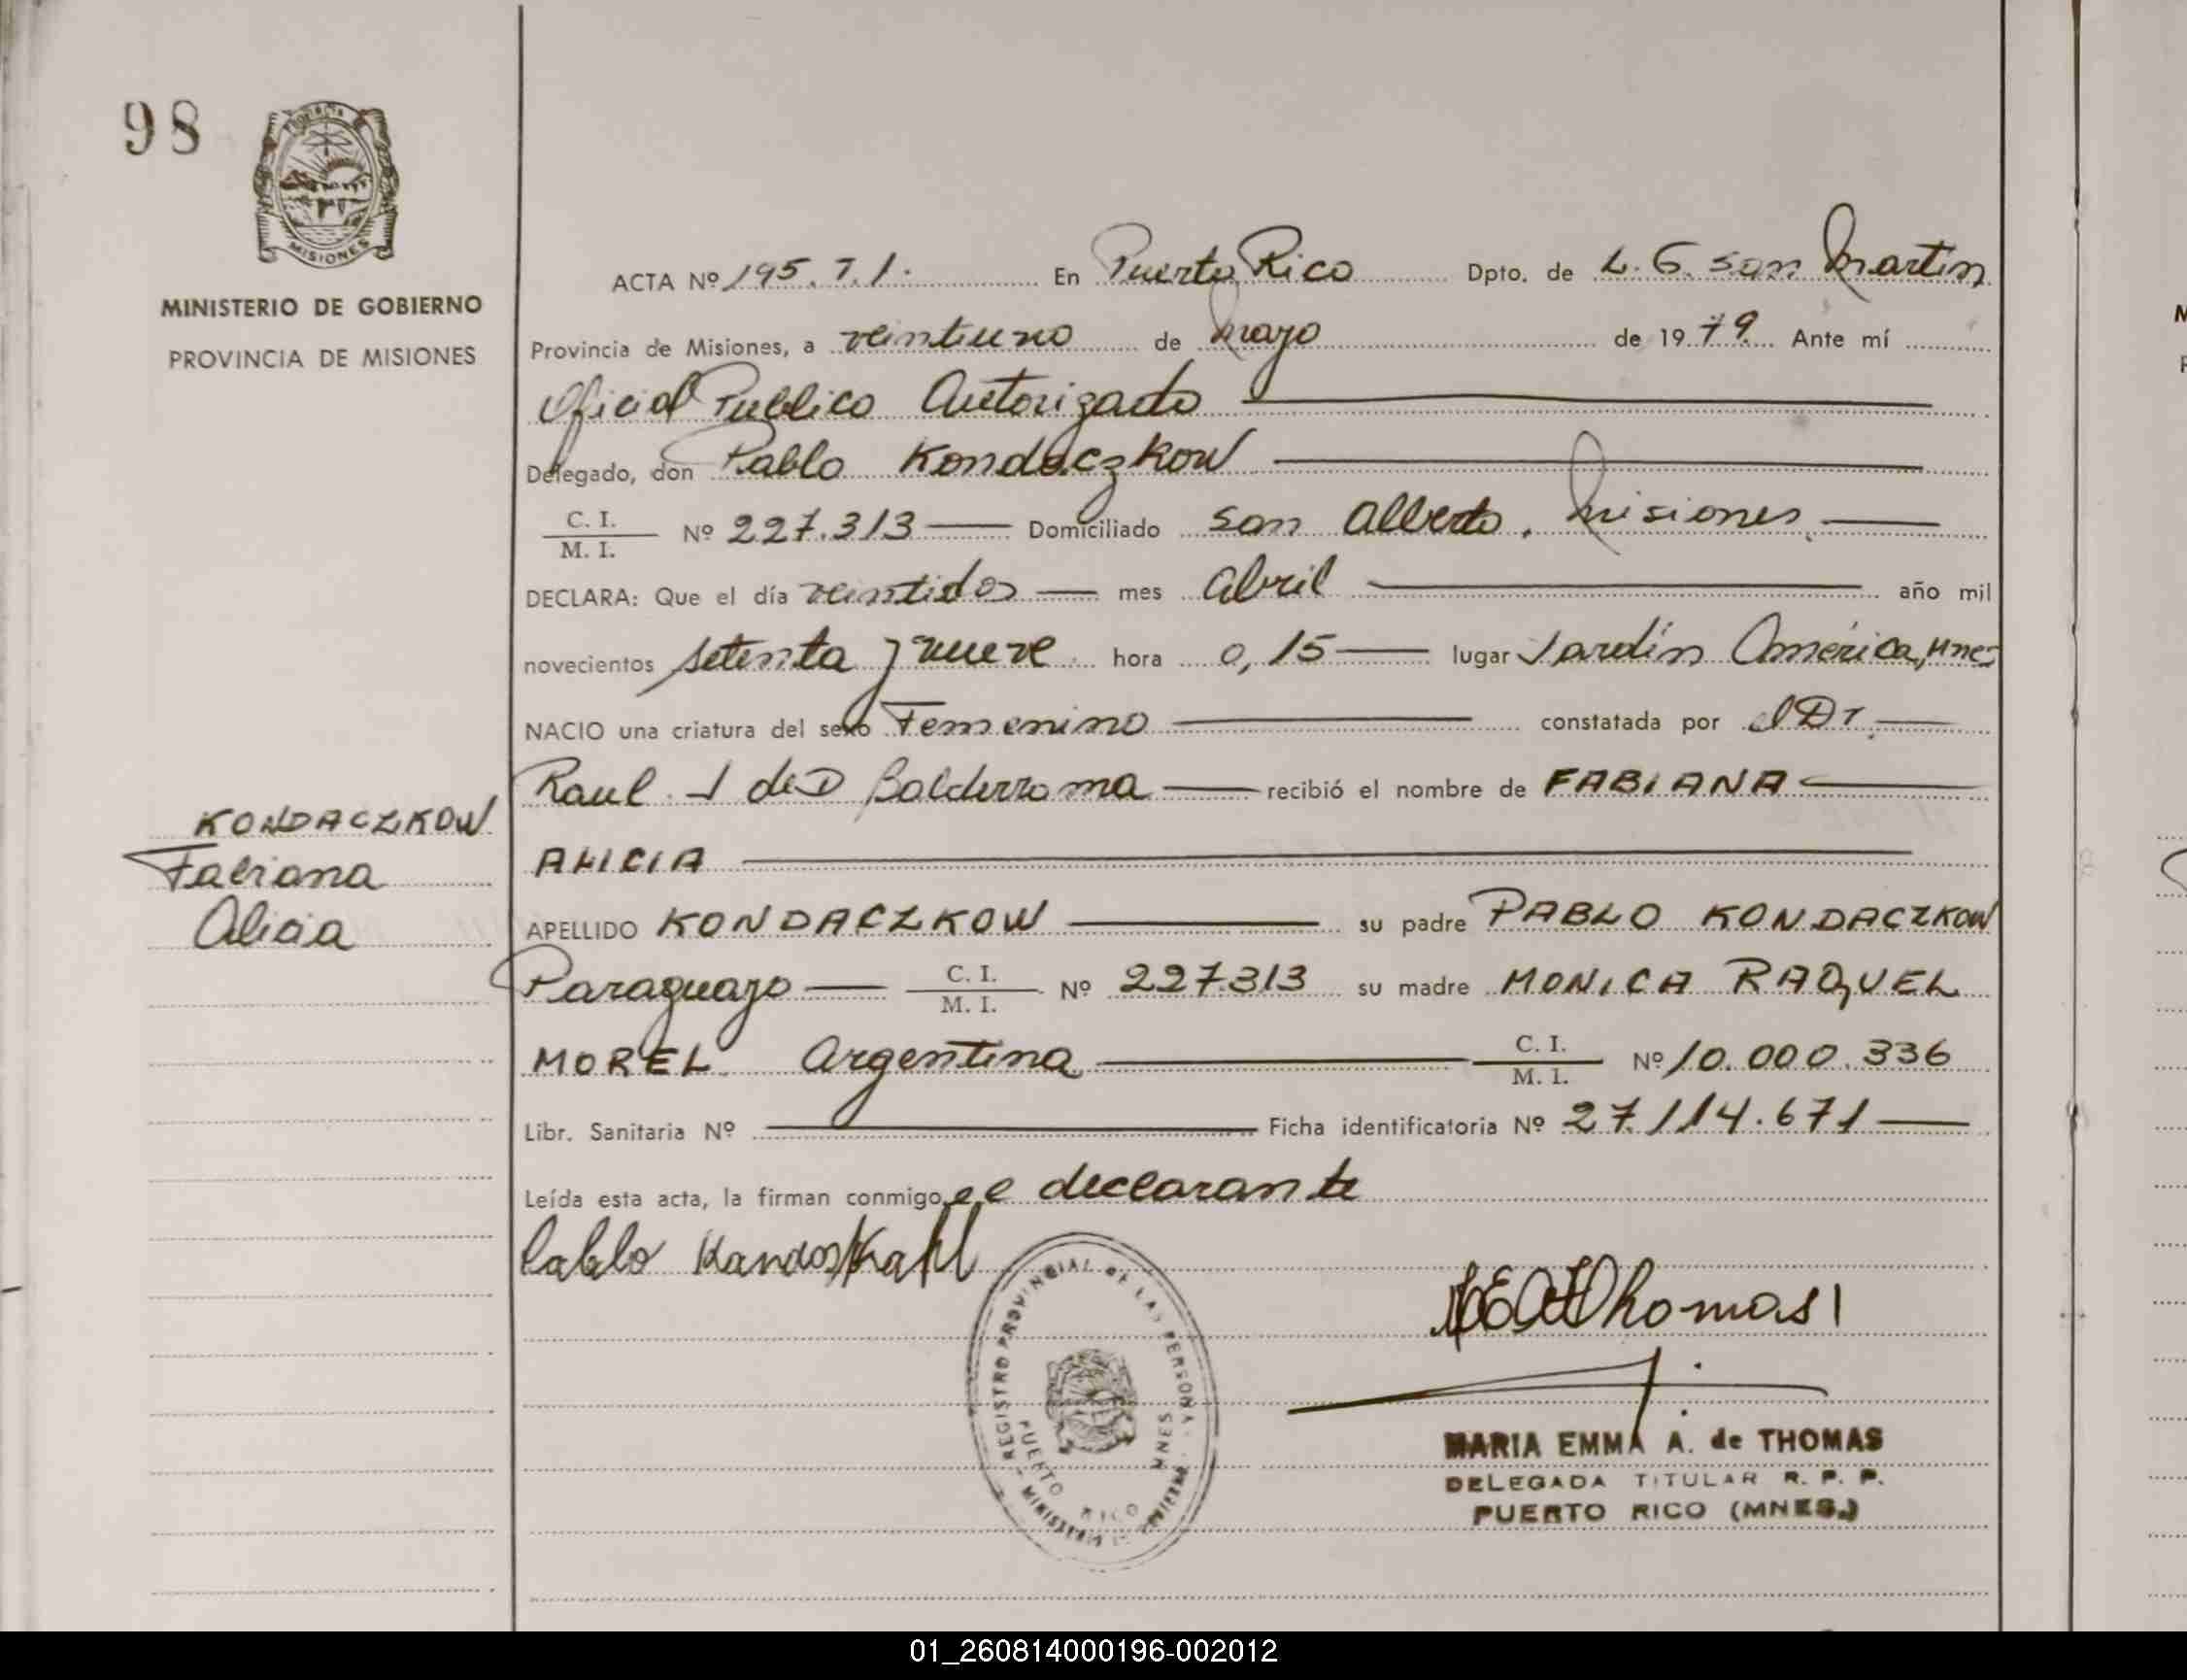 98
MISIONES
MINISTERIO DE GOBIERNO
PROVINCIA DE MISIONES
KONDACZKOW
Fabiana
Alicia
ACTA Nº 195. T. 1. En Puerto Rico Dpto. de L. G. San Martin
Provincia de Misiones, a veintiuno de mayo de 1979. Ante mí
Oficial Publico Autorizado
Delegado, don Pablo Kondaczkow
C. I.
M. I. Nº 227.313 Domiciliado San Alberto, Misiones
DECLARA: Que el día veintidos mes abril año mil
novecientos setenta y nueve hora 0,15 lugar Jardín América, Mnes
NACIO una criatura del sexo Femenino constatada por el Dr.
Raul J de D Balderrama recibió el nombre de FABIANA
ALICIA
APELLIDO KONDACZKOW su padre PABLO KONDACZKOW
Paraguayo C. I.
M. I. Nº 227.313 su madre MONICA RAQUEL
MOREL Argentina C. I.
M. I. Nº 10.000.336
Libr. Sanitaria Nº Ficha identificatoria Nº 27.114.671
Leída esta acta, la firman conmigo, el declarante
Pablo
REGISTRO PROVINCIAL DE LAS PERSONAS
PUERTO RICO MNES
Thomas
MARIA EMMA A. de THOMAS
DELEGADA TITULAR R. P. P.
PUERTO RICO (MNES.)
01_260814000196-002012